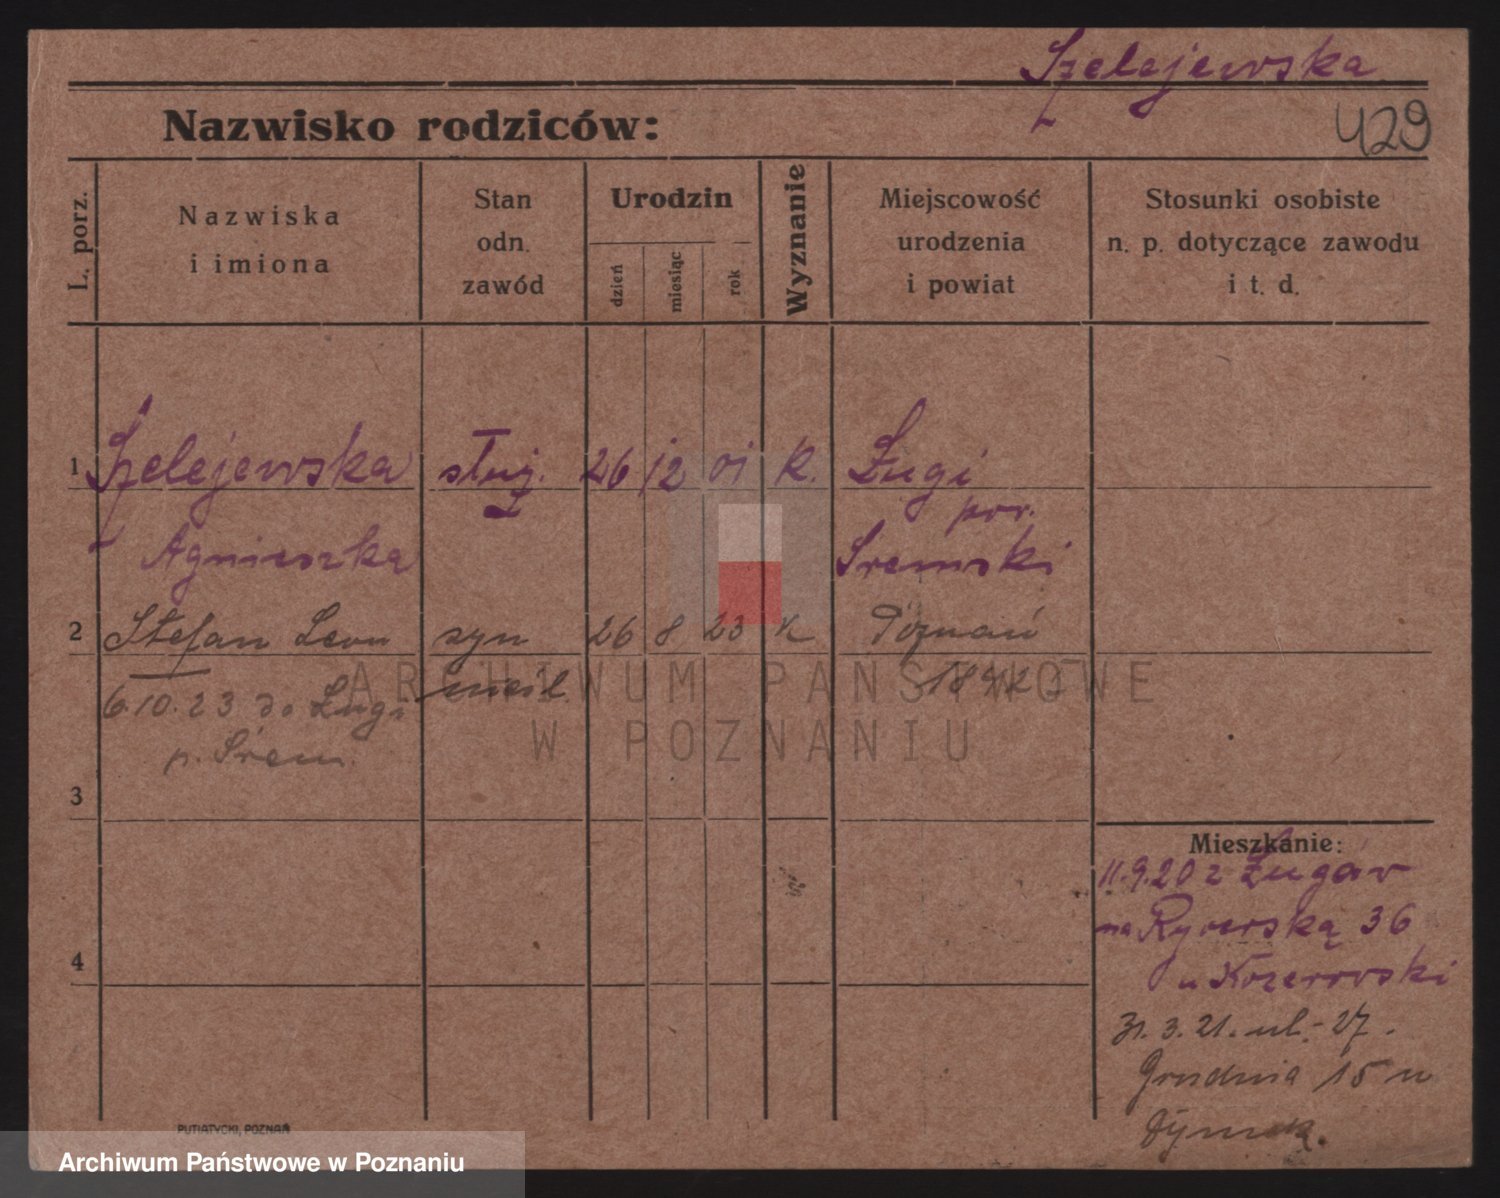 Szelejewska
429
Nazwisko rodziców:
L. porz.
Nazwiska
i imiona
Stan
odn.
zawód
Urodzin
dzień
miesiąc
rok
Wyznanie
Miejscowość
urodzenia
i powiat
Stosunki osobiste
n. p. dotyczące zawodu
i t. d.
1 Szelejewska służ. 26 12 01 K. Ługi
pow.
Agnieszka Śremski
2 Stefan Leon syn 26 8 23 K Poznań
6.10.23 do Ługi nieśl.
p. Śrem.
3
4
Mieszkanie:
11.9.20 z Ługów
na Rycerską 36
u
31.3.21. ul. 27.
Grudnia 15 u
PUTIATYCKI, POZNAŃ
ARCHIWUM PAŃSTWOWE
W POZNANIU
Archiwum Państwowe w Poznaniu